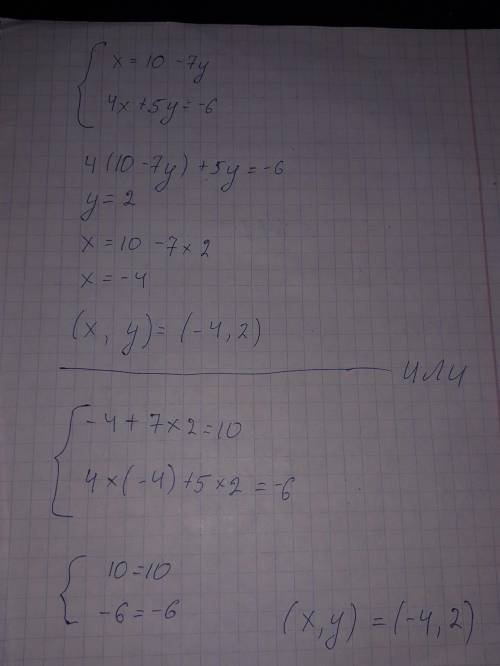 x = 10 - 7y
4x + 5y = -6
4(10 - 7y) + 5y = -6
y = 2
x = 10 - 7 × 2
x = -4
(x, y) = (-4, 2)
или
-4 + 7 × 2 = 10
4 × (-4) + 5 × 2 = -6
10 = 10
-6 = -6
(x, y) = (-4, 2)